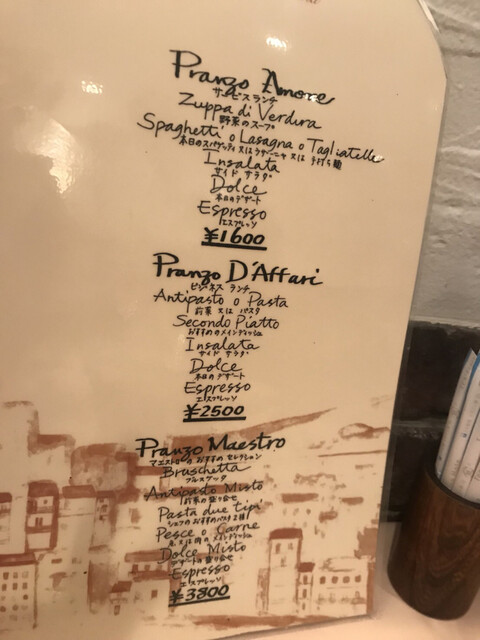 Pranzo Amore
サービスランチ
Zuppa di Verdura
野菜のスープ
Spaghetti o Lasagna o Tagliatelle
本日のスパゲッティ 又は ラザーニャ 又は 手打ち麺
Insalata
サイド サラダ
Dolce
本日のデザート
Espresso
エスプレッソ
¥1600
Pranzo D'Affari
ビジネス ランチ
Antipasto o Pasta
前菜 又は パスタ
Secondo Piatto
おすすめのメインディッシュ
Insalata
サイド サラダ
Dolce
本日のデザート
Espresso
エスプレッソ
¥2500
Pranzo Maestro
マエストローのおすすめ セレクション
Bruschetta
ブルスケッタ
Antipasto Misto
前菜の盛り合せ
Pasta due tipi
シェフのおすすめパスタ2種
Pesce o Carne
魚 又は 肉の メインディッシュ
Dolce Misto
デザートの盛り合せ
Espresso
エスプレッソ
¥3800